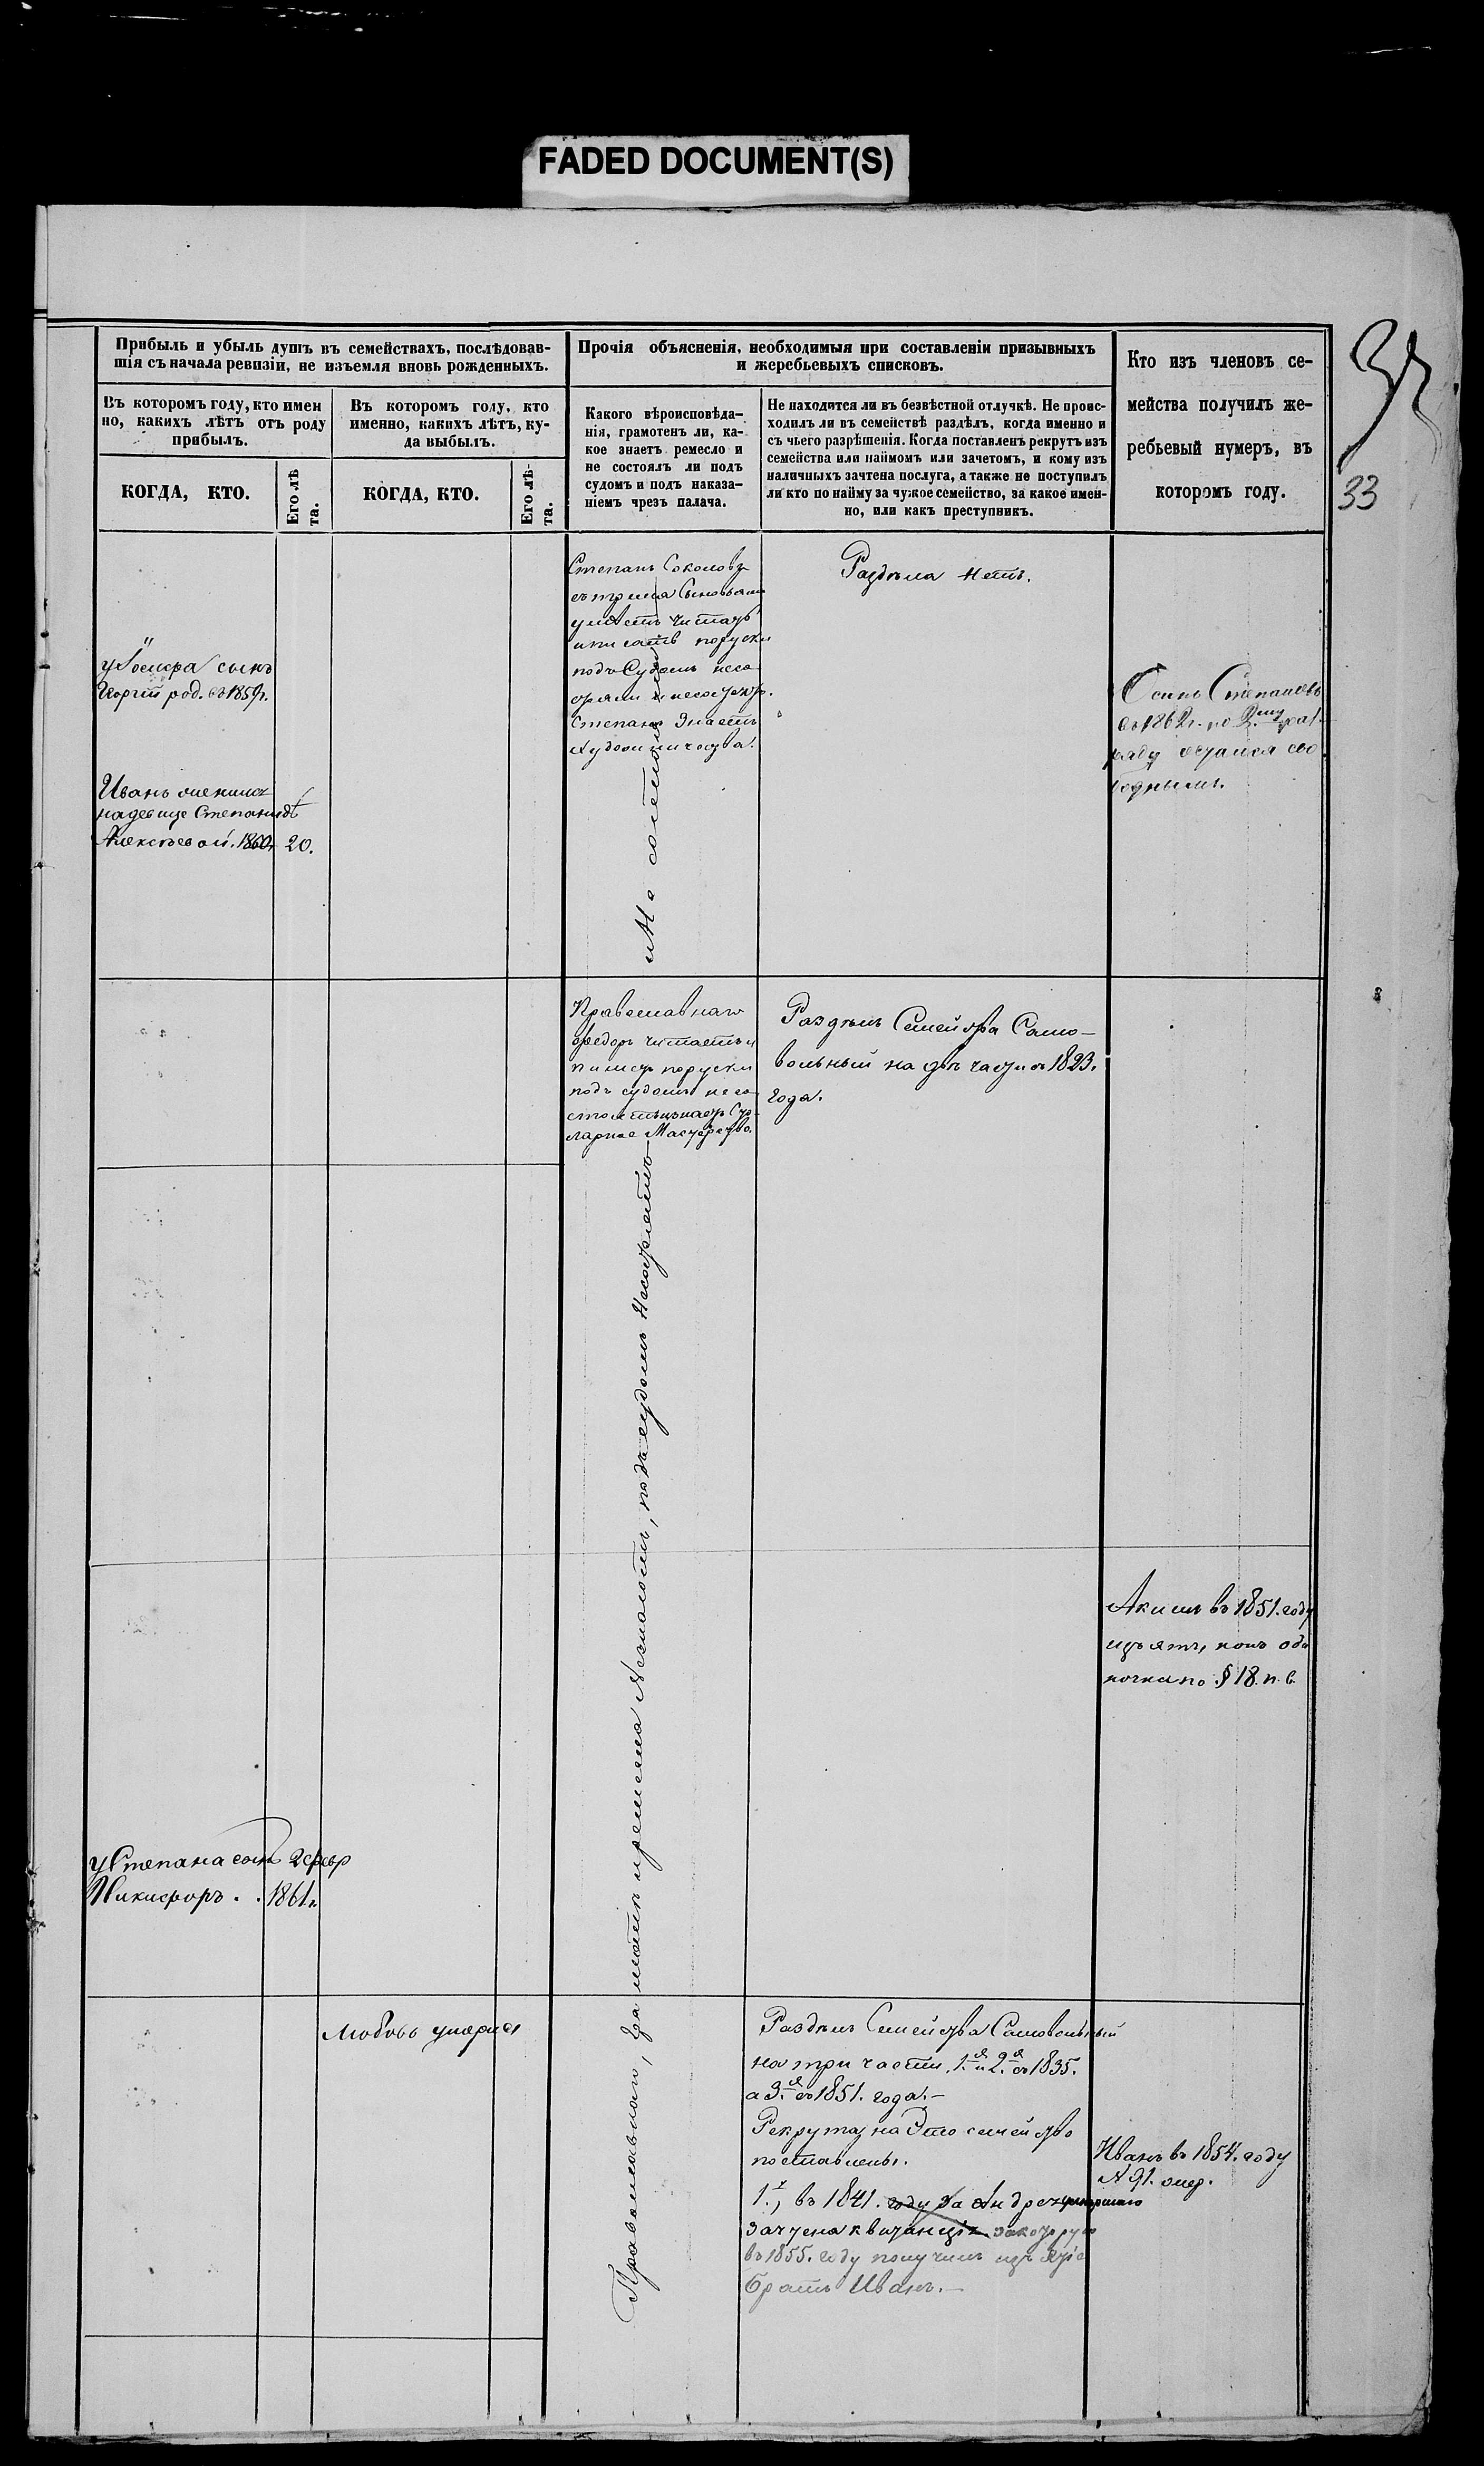 FADED DOCUMENT(S)
Прибыль и убыль душъ въ семействахъ, послѣдовав-
шія съ начала ревизіи, не изъемля вновь рожденныхъ.
Прочія объясненія, необходимыя при составленіи призывныхъ
и жеребьевыхъ списковъ.
Кто изъ членовъ се-
мейства получилъ же-
ребьевый нумеръ, въ
которомъ году.
33
Въ которомъ году, кто имен
но, какихъ лѣтъ отъ роду
прибылъ.
Въ которомъ году, кто
именно, какихъ лѣтъ, ку-
да выбылъ.
Какого вѣроисповѣда-
нія, грамотенъ ли, ка-
кое знаетъ ремесло и
не состоялъ ли подъ
судомъ и подъ наказа-
ніемъ чрезъ палача.
Не находится ли въ безвѣстной отлучкѣ. Не проис-
ходилъ ли въ семействѣ раздѣлъ, когда именно и
съ чьего разрѣшенія. Когда поставленъ рекрутъ изъ
семейства или наймомъ или зачетомъ, и кому изъ
наличныхъ зачтена послуга, а также не поступилъ
ли кто по найму за чужое семейство, за какое имен-
но, или какъ преступникъ.
КОГДА, КТО.
Его лѣ
та.
КОГДА, КТО.
Его лѣ-
та.
сынъ
Георгій род. въ 1859г.
Иванъ
на девице Степанидѣ
Алексѣевой. 1860г 20.
Степанъ Соколовъ
съ тремя Сыновьями
умѣетъ читать
и писать поруски
подъ Судомъ несо
Степанъ Знаетъ
Раздѣла нетъ.
Осипъ Степановъ
въ 1862г. по 2му раз
ряду остался сво
боднымъ.
Православнаго
Федоръ читаетъ и
пишетъ поруски
подъ судомъ несо
стоялъ знаетъ Сто
ларное Мастерство.
Раздѣлъ Семейства Само-
вольный на двѣ части въ 1823.
года.
Акимъ въ 1851. году
изъятъ, какъ оди
ночка по § 18. п. в.
у Степана сынъ 2 февр
Никифоръ . . 1861г.
Любовь умерла
Православнаго, грамотѣ и ремесла Незнаютъ, подъ судомъ Несостоятъ
Раздѣлъ Семейства Самовольный
на три части, 1я и 2я въ 1835.
а 3я въ 1851. года.-
Рекрута на Это семейство
поставлены.
1., въ 1841. году за Андрея умершаго
зачтена квитанція закоторую
въ 1855. году получилъ изъятіе
братъ Иванъ.-
Иванъ въ 1854. году
№ 91. очер.